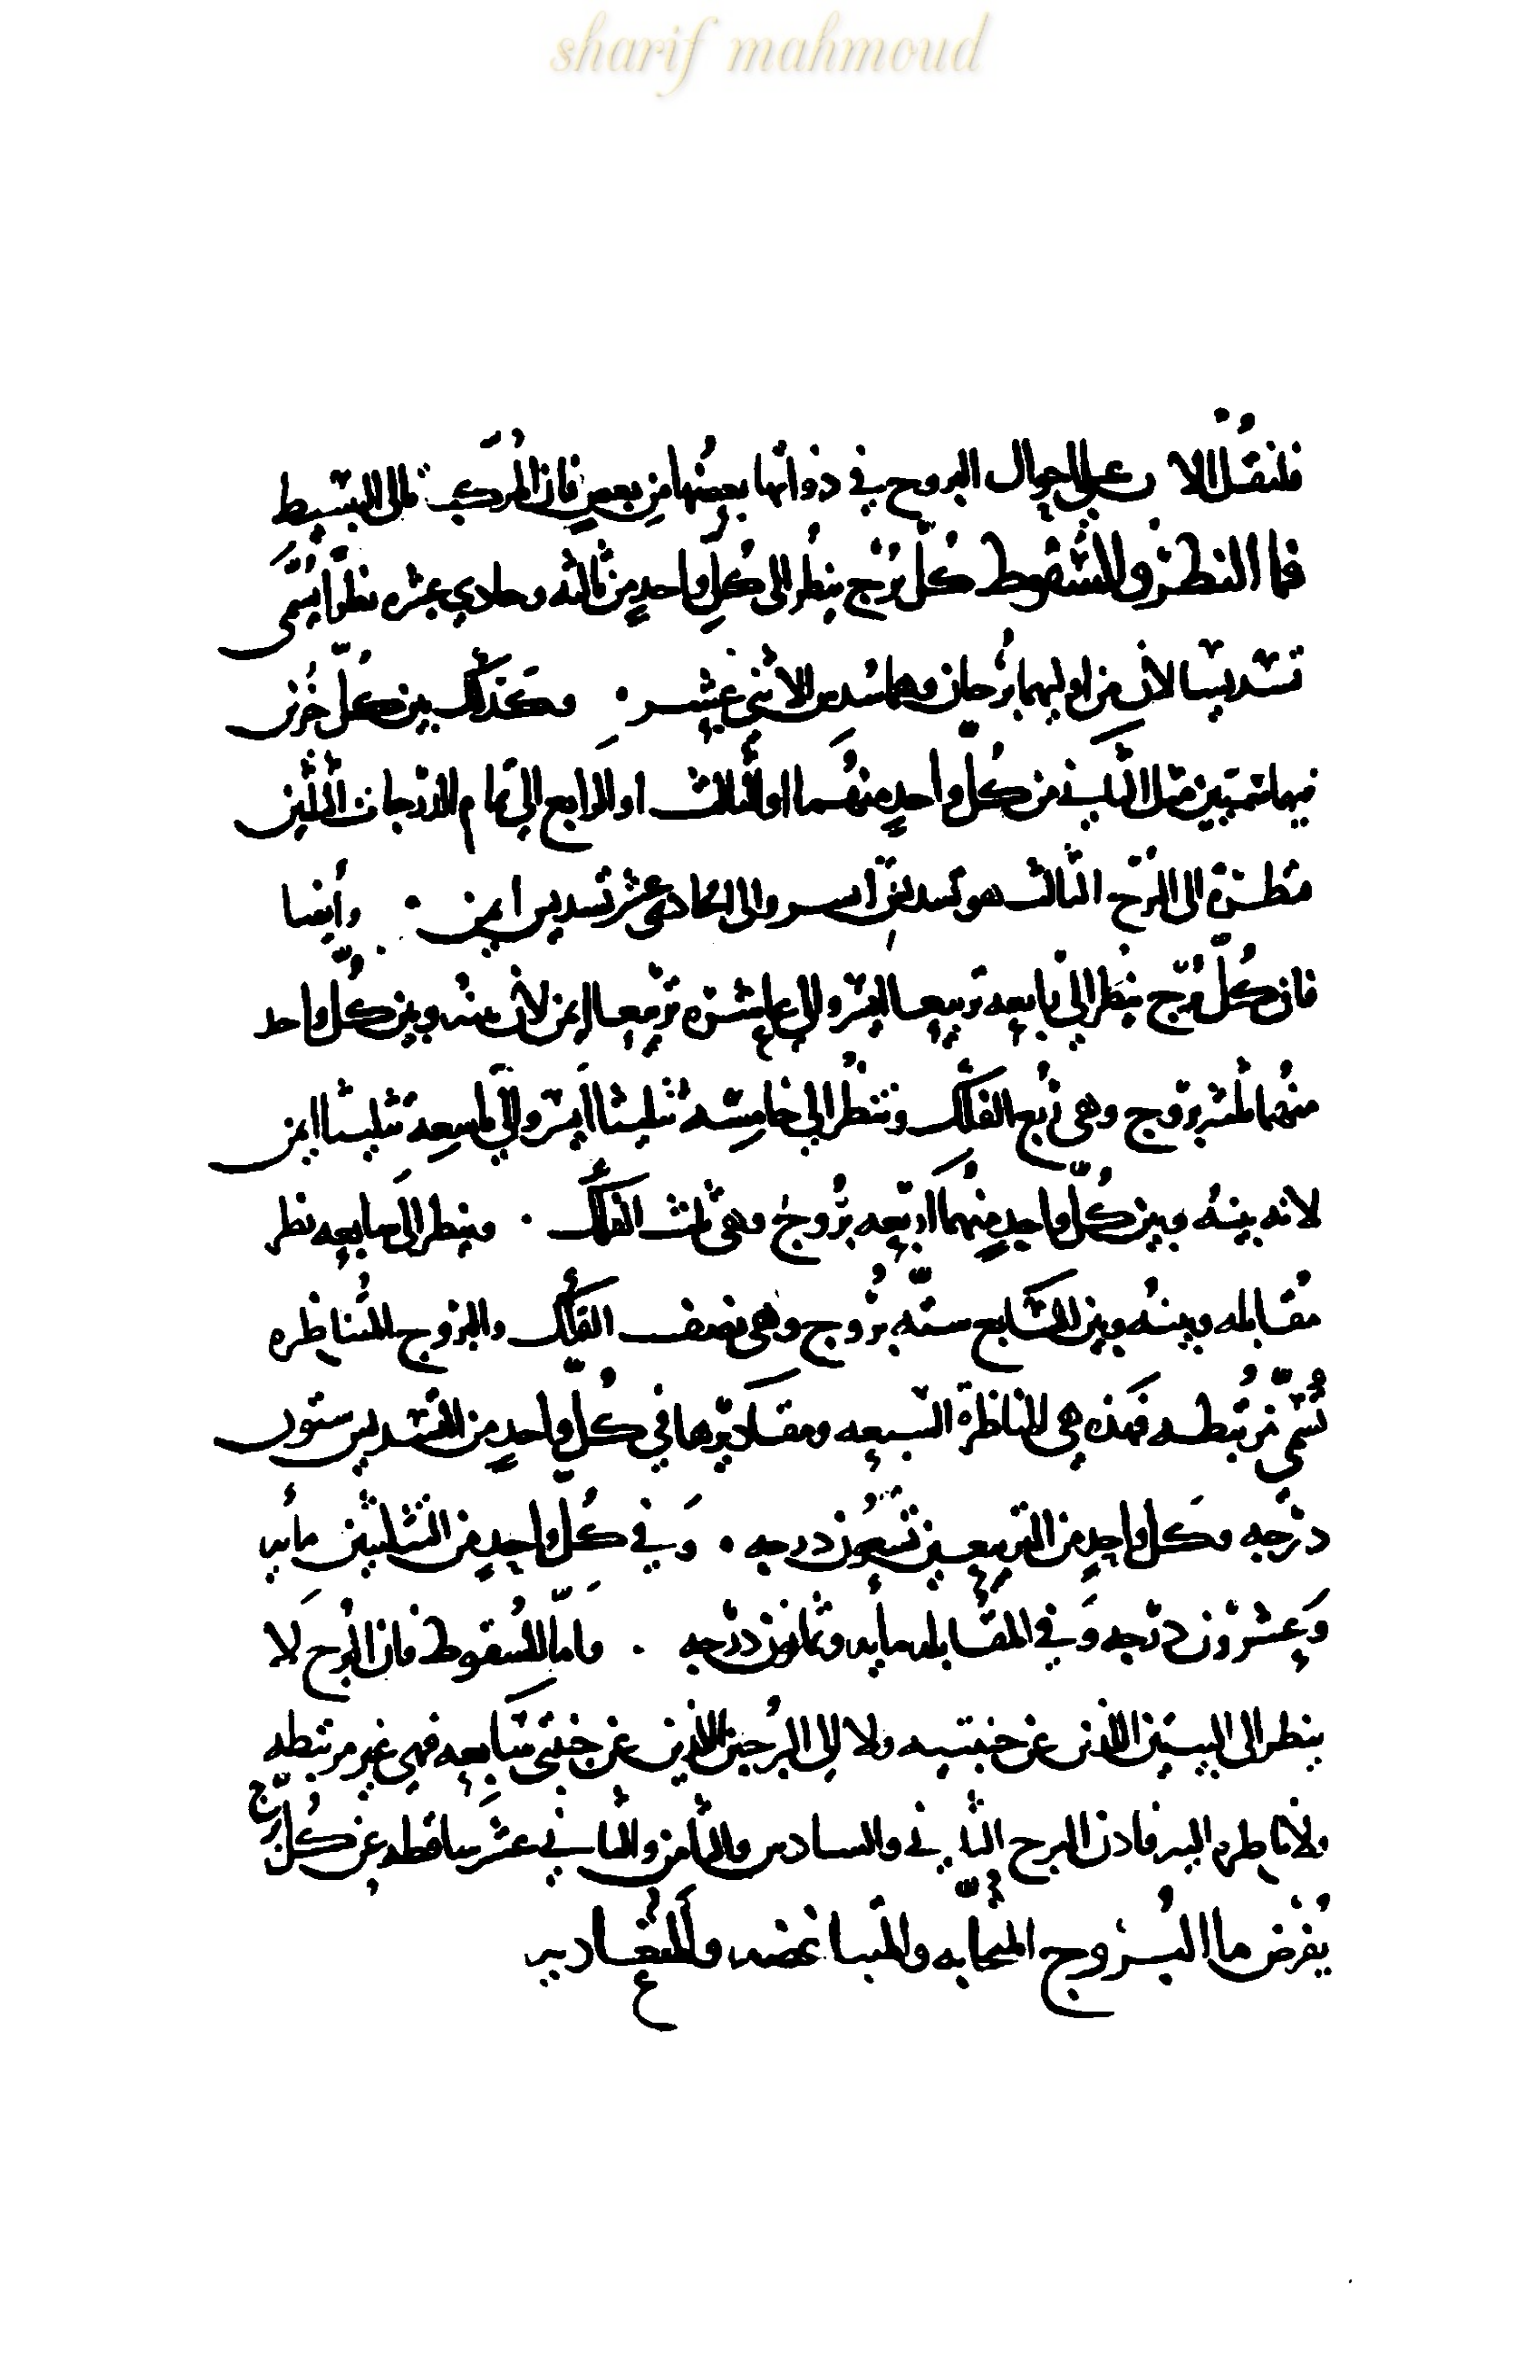 sharif mahmoud
فلنقل الان على احوال البروج في ذواتها بعضها من بعض فان المركب تالى البسيط
فما النظر والسقوط كل برج ينظر الى كل واحد من ثالثه وحادي عشره نظرا يسمى
تسديسا لان من اوليهما برجان وهما سدس الاثنى عشر . وكذلك بين كل جزئين
فيهما متشابهين مثل الثاني من كل واحد منهما او الثالث او الرابع الى تمام الدرجات الثلثين
فنظره الى البرج الثالث هو تسديس ايسر والى الحادى عشر تسديس ايمن . وأيضا
فان كل برج ينظر الى رابعه تربيعا ايسر والى عاشره تربيعا ايمن لان بينه وبين كل واحد
منهما ثلثه بروج وهى ربع الفلك وينظر الى خامسه تثليثا ايسر والى تاسعه تثليثا ايمن
لانه بينه وبين كل واحد منهما اربعه بروج وهى ثلث الفلك . وينظر الى سابعه نظر
مقابله وبينه وبين السابع سته بروج وهى نصف الفلك والبروج المتناظره
تسمى مرتبطه فهذه هى المناظرة السبعه ومقاديرها في كل واحد من التسديسين ستون
درجه وكل واحد من التربيعين تسعون درجه . وفي كل واحد من التثليثين مأيه
وعشرون درجه وفي المقابله مأيه وثمانون درجه . واما السقوط فان البرج لا
ينظر الى البيتين اللذين عن جنبتيه ولا الى البرجين اللذين عن جنبتى سابعه فهي غير مرتبطه
ولا ناظره اليه فاذن البرج الثاني والسادس والثامن والثاني عشر ساقطه عن كل برج
يفرض ما البروج المتحابه والمتباغضه والمتعاديه